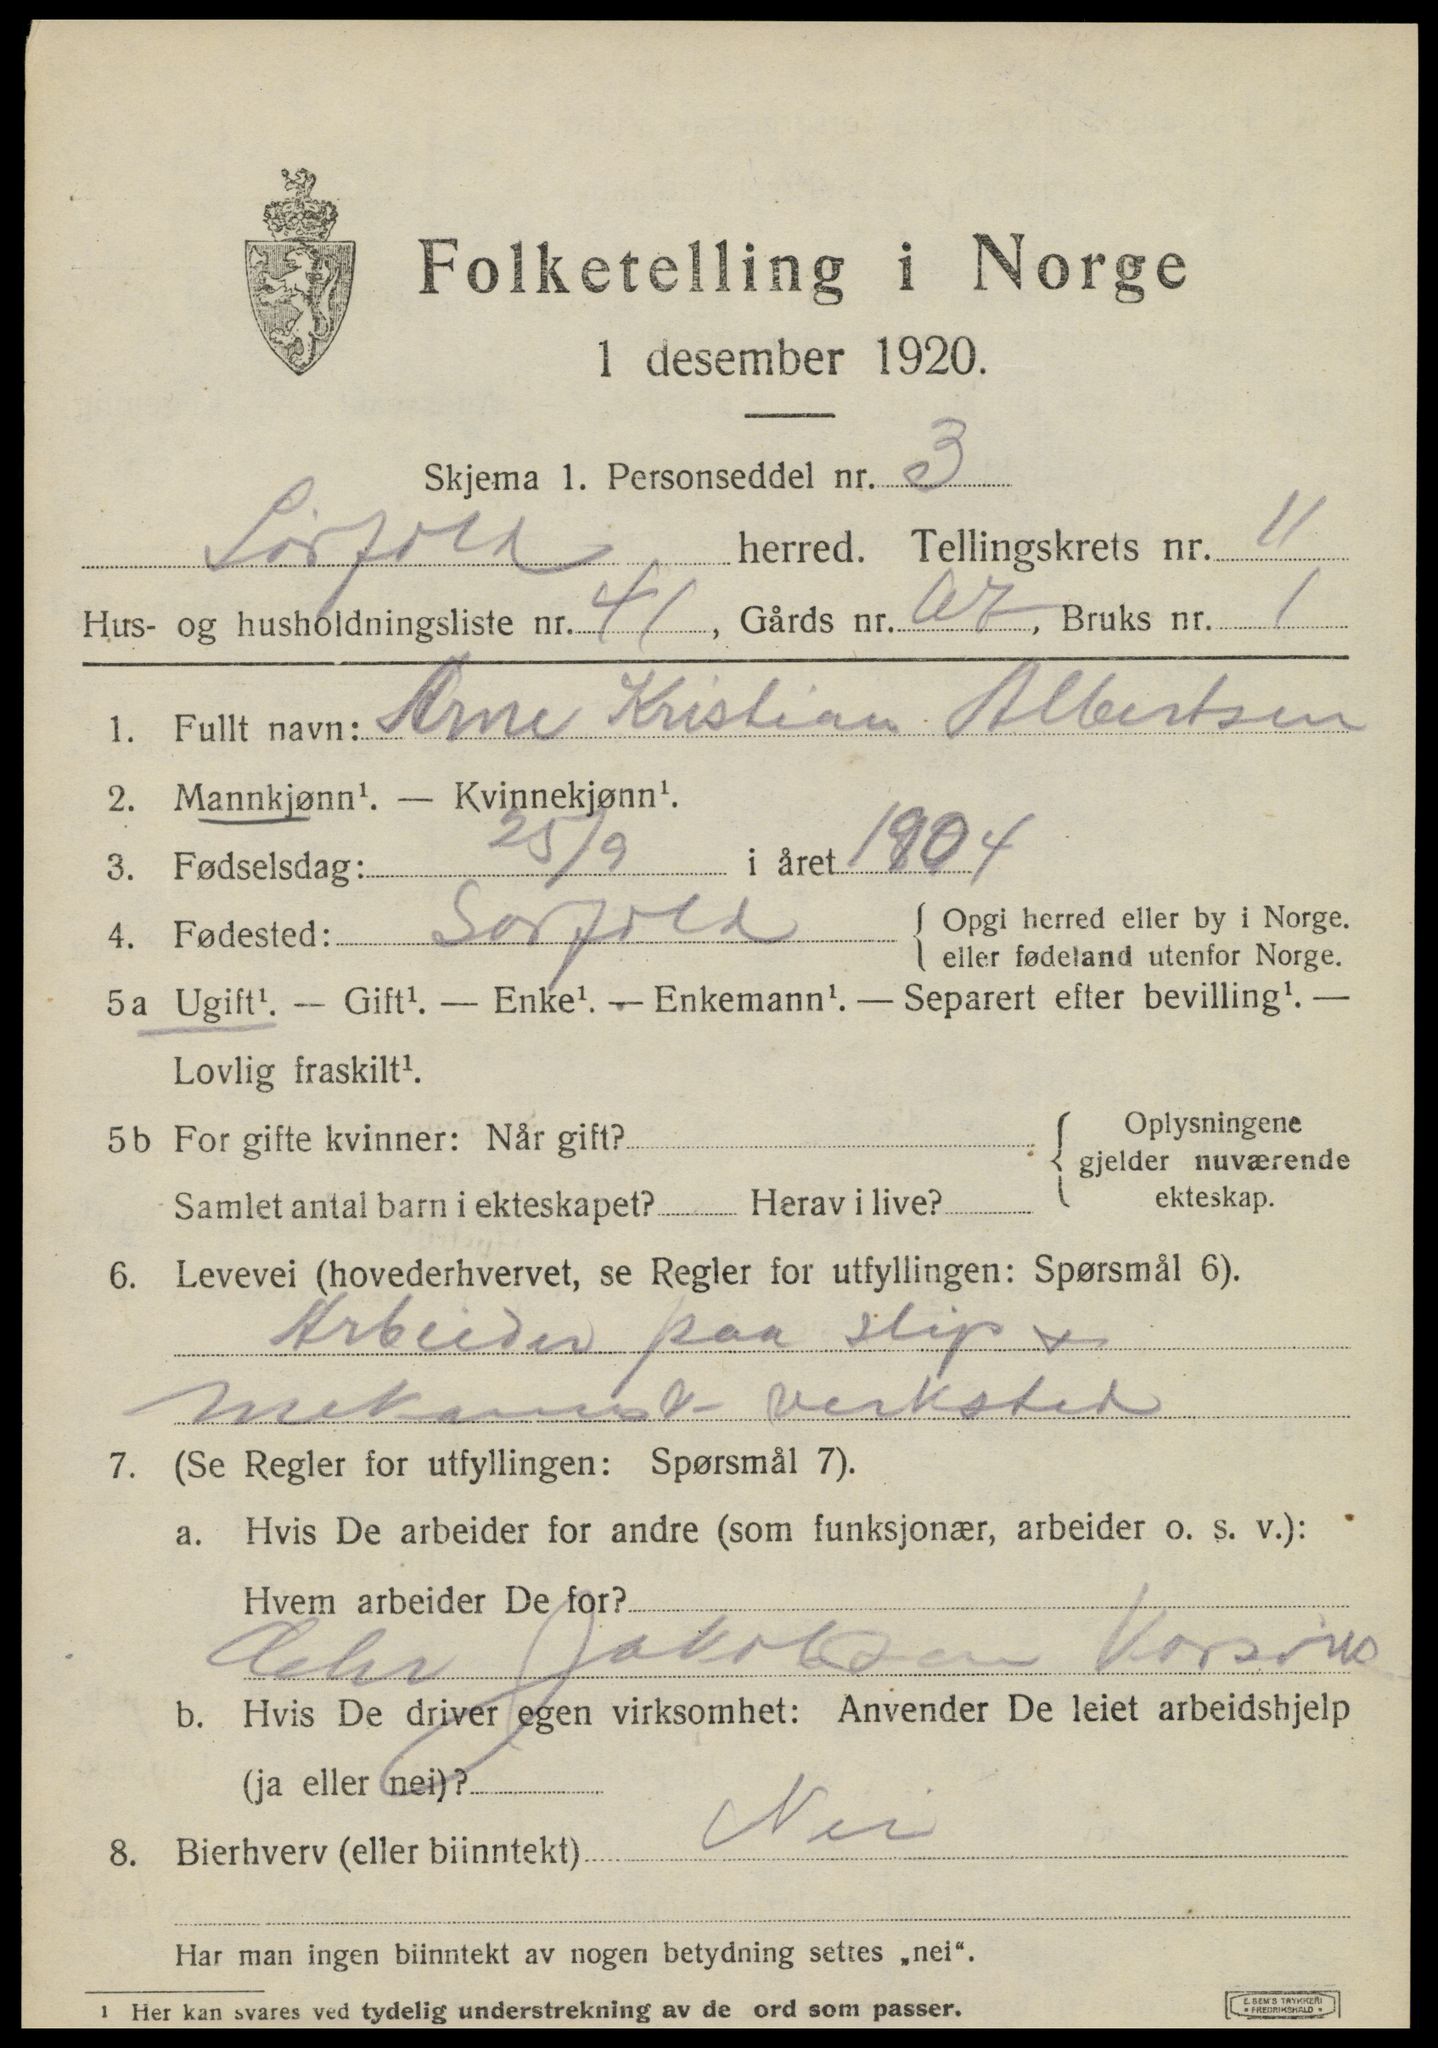 Folketelling i Norge
1 desember 1920.
Skjema 1. Personseddel nr. 3
Sørfold herred. Tellingskrets nr. 11
Hus- og husholdningsliste nr. 41, Gårds nr. Bruks nr. 1
1. Fullt navn: Arne Kristian Albertsen
2. Mannkjønn¹. — Kvinnekjønn¹.
3. Fødselsdag: 25/9 i året 1904
4. Fødested: Sørfold { Opgi herred eller by i Norge.
eller fødeland utenfor Norge.
5a Ugift¹. — Gift¹. — Enke¹. — Enkemann¹. — Separert efter bevilling¹. —
Lovlig fraskilt¹.
5b For gifte kvinner: Når gift? { Oplysningene
gjelder nuværende
Samlet antal barn i ekteskapet? Herav i live? ekteskap.
6. Levevei (hovederhvervet, se Regler for utfyllingen: Spørsmål 6).
Arbeider paa slip
mekanisk verksted
7. (Se Regler for utfyllingen: Spørsmål 7).
a. Hvis De arbeider for andre (som funksjonær, arbeider o. s. v.):
Hvem arbeider De for?
Jakobsen
b. Hvis De driver egen virksomhet: Anvender De leiet arbeidshjelp
(ja eller nei)?
8. Bierhverv (eller biinntekt) Nei
Har man ingen biinntekt av nogen betydning settes „nei“.
¹ Her kan svares ved tydelig understrekning av de ord som passer.
E. SEM'S TRYKKERI
FREDRIKSHALD